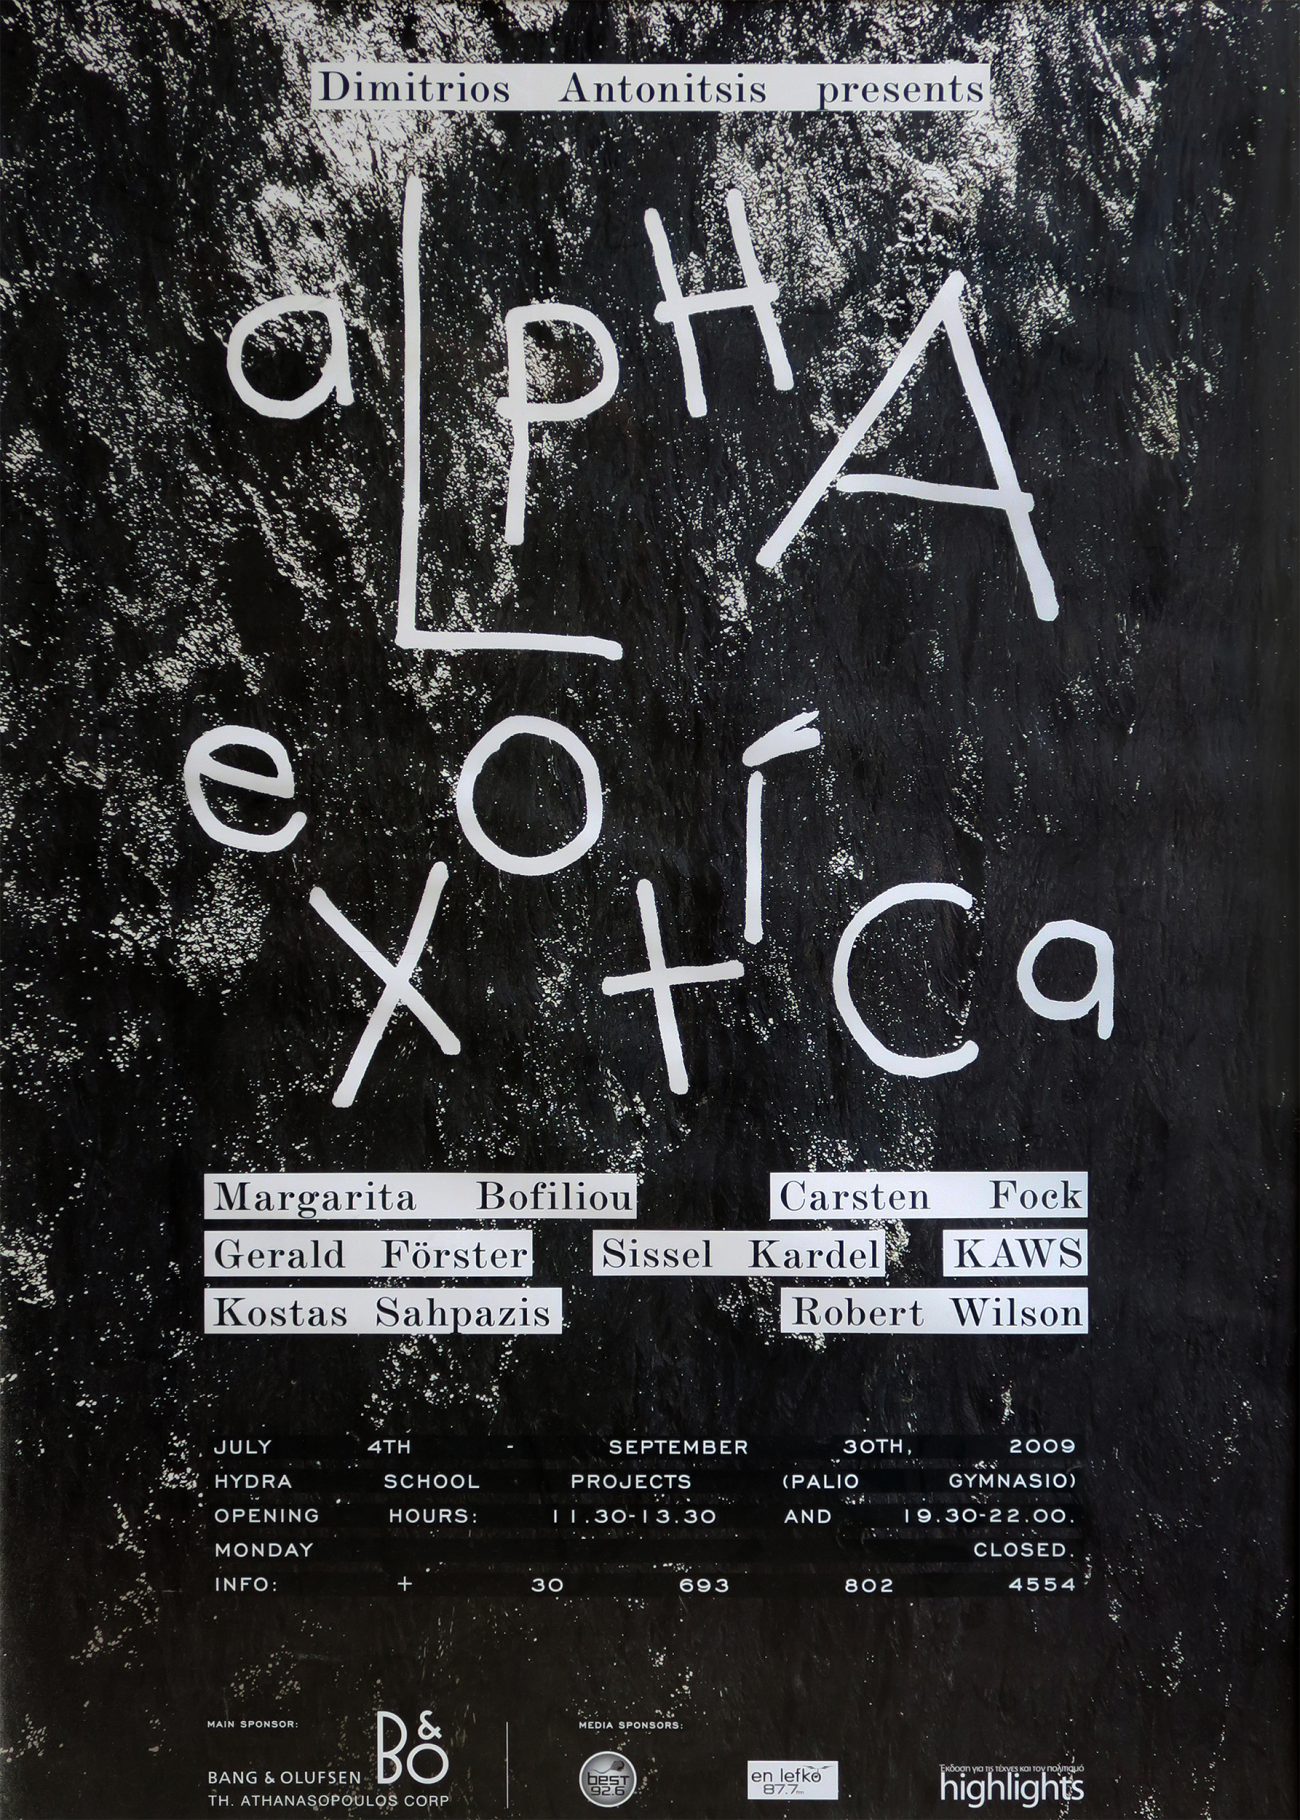 Dimitrios Antonitsis presents
aLpHA
exotíca
Margarita Bofiliou Carsten Fock
Gerald Förster Sissel Kardel KAWS
Kostas Sahpazis Robert Wilson
JULY 4TH - SEPTEMBER 30TH, 2009
HYDRA SCHOOL PROJECTS (PALIO GYMNASIO)
OPENING HOURS: 11.30-13.30 AND 19.30-22.00.
MONDAY CLOSED.
INFO: + 30 693 802 4554
MAIN SPONSOR:
B&O
BANG & OLUFSEN
TH. ATHANASOPOULOS CORP
MEDIA SPONSORS:
best
92.6
en lefkó
87.7fm
Έκδοση για τις τέχνες και τον πολιτισμό
highlights